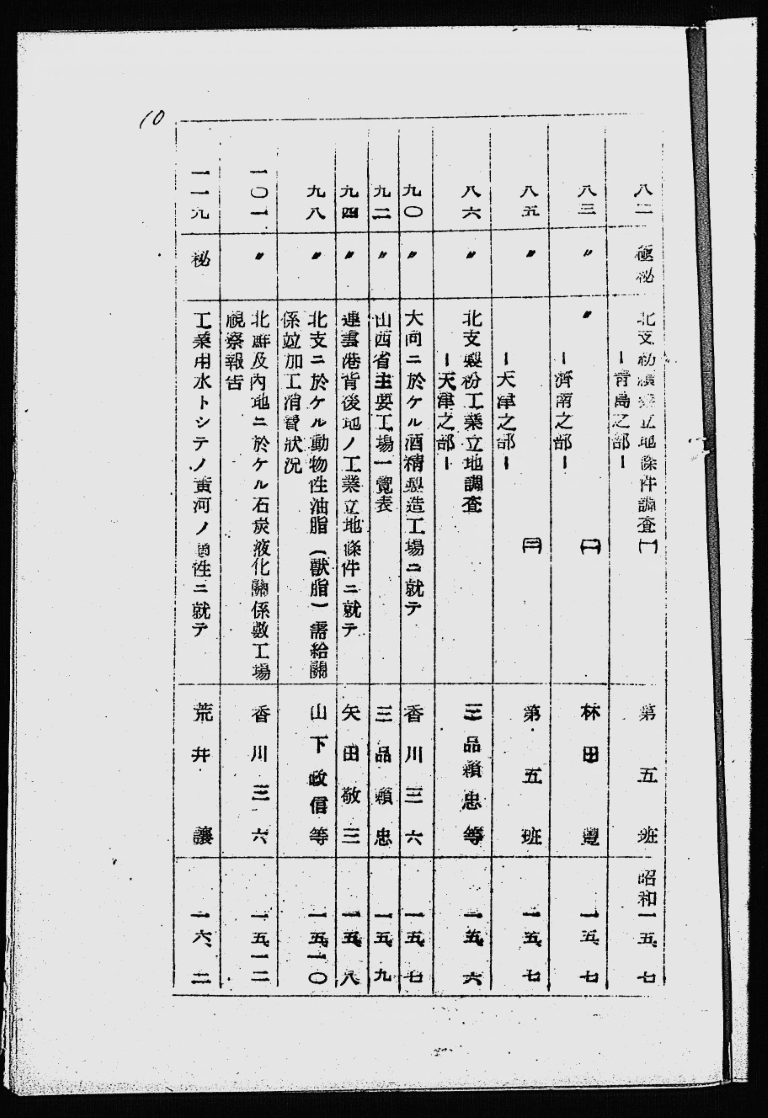 10
八二 極秘 北支紡績業立地條件調査(一) 第五班 昭和一五、七
―青島之部―
八三 〃 〃 (二) 林田豊 一五、七
―濟南之部―
八五 〃 (三) 第五班 一五、七
―天津之部―
八六 〃 北支製粉工業立地調査 三品頼忠等 一五、六
―天津之部―
九〇 〃 大同ニ於ケル酒精製造工場ニ就テ 香川三六 一五、七
九二 〃 山西省主要工場一覽表 三品頼忠 一五、九
九四 〃 連雲港背後地ノ工業立地條件ニ就テ 矢田敬三 一五、八
九八 〃 北支ニ於ケル動物性油脂(獸脂)需給關 山下政信等 一五、一〇
係竝加工消費狀況
一〇一 〃 北鮮及內地ニ於ケル石炭液化關係數工場 香川三六 一五、一二
視察報告
一一九 秘 工業用水トシテノ黄河ノ性ニ就テ 荒井讓 一六、二